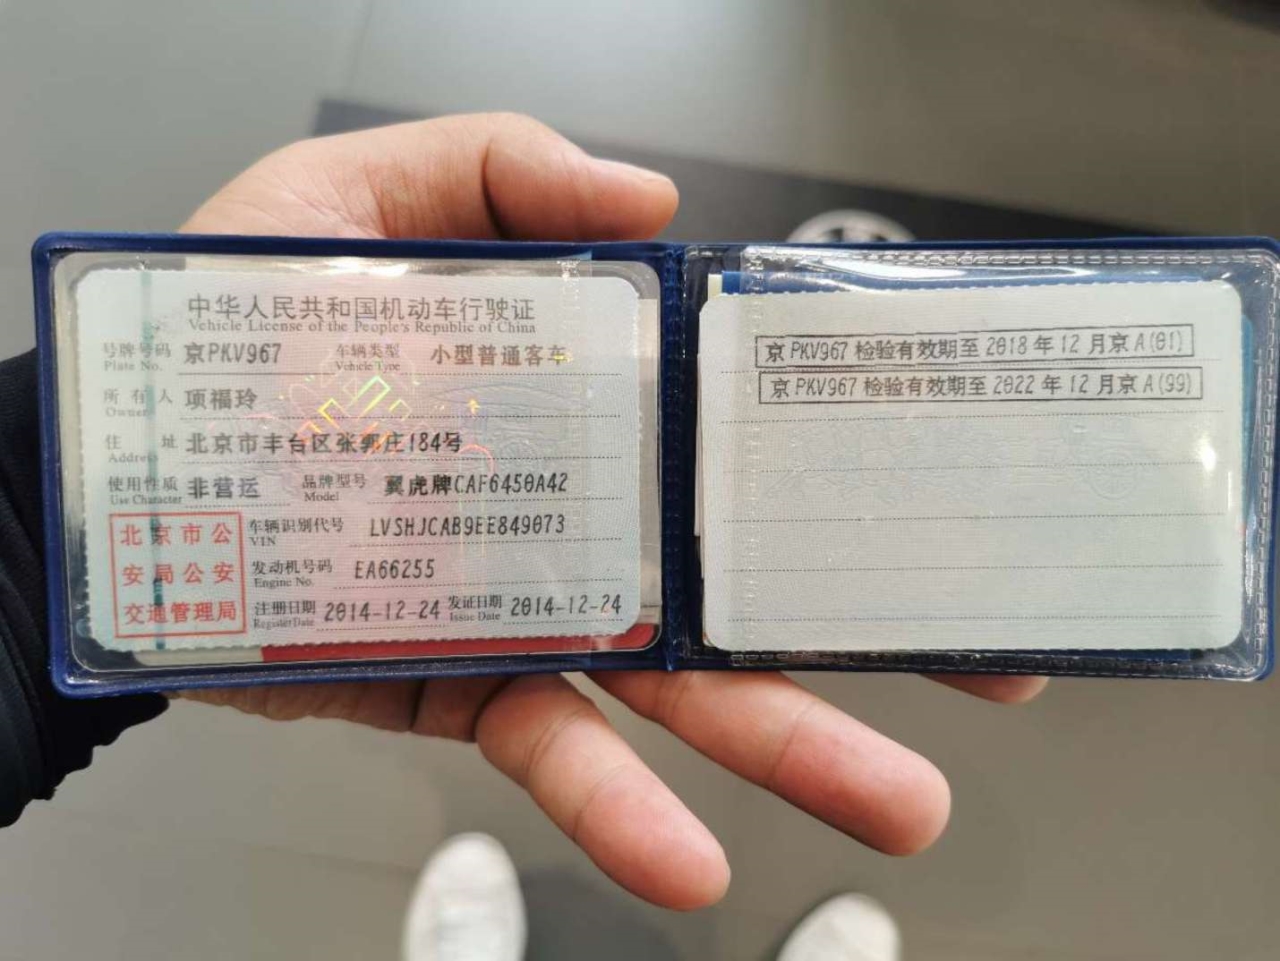 中华人民共和国机动车行驶证
Vehicle License of the People's Republic of China
号牌号码 京PKV967 车辆类型 小型普通客车
Plate No. Vehicle Type
所有人 项福玲
Owner
住址 北京市丰台区张郭庄184号
Address
使用性质 非营运 品牌型号 翼虎牌CAF6450A42
Use Character Model
北京市公安局公安交通管理局
车辆识别代号 LVSHJCAB9EE849073
VIN
发动机号码 EA66255
Engine No.
注册日期 2014-12-24 发证日期 2014-12-24
Register Date Issue Date
京PKV967 检验有效期至 2018 年 12 月京 A(01)
京PKV967 检验有效期至 2022 年 12 月京 A(99)